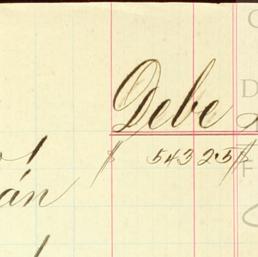 Debe
$ 543 25 $
án